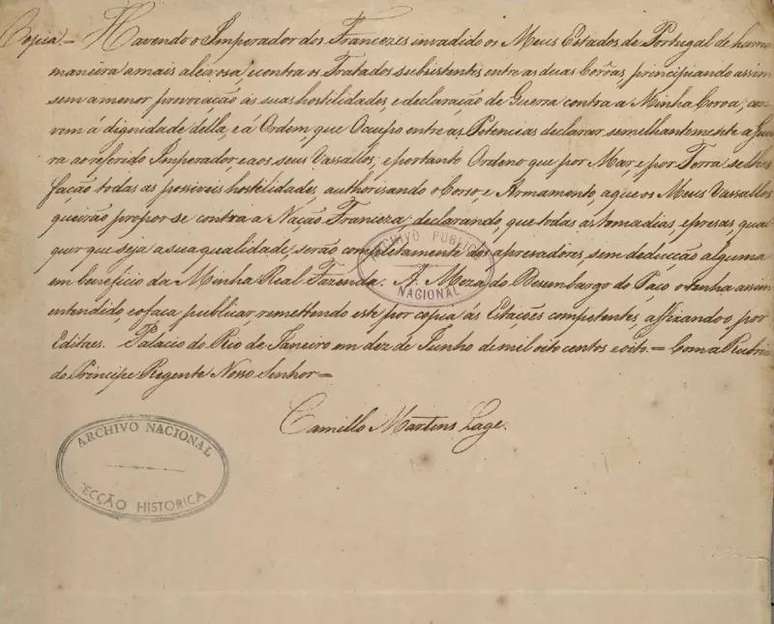 Copia = Havendo o Imperador dos Francezes invadido os Meus Estados de Portugal de huma
maneira a mais aleivosa, e contra os Tratados subsistentes entre as duas Corôas, principiando assim
sem a menor provocação as suas hostilidades, e declaração de Guerra contra a Minha Coroa; con-
vem á dignidade della, e á Ordem, que Occupo entre as Potencias declarar semelhantemente a Guer-
ra ao referido Imperador, e aos seus Vassallos; e portanto Ordeno que por Mar, e por Terra se lhes
fação todas as possiveis hostilidades, authorisando o Corso, e Armamento, a que os Meus Vassallos
queirão propor-se contra a Nação Franceza; declarando, que todas as tomadias, e presas qual-
quer que seja a sua qualidade, serão completamente dos apresadores, sem deducção alguma
em beneficio da Minha Real Fazenda. A Meza do Desembargo do Paço o tenha assim
entendido, e o faça publicar remettendo este por copia ás Estações competentes, e affixando-o por
Editaes. Palacio do Rio de Janeiro em dez de Junho de mil oito centos e oito. = Com a Rubrica
do Principe Regente Nosso Senhor =
Camillo Martins Lage.
ARCHIVO PUBLICO
NACIONAL
ARCHIVO NACIONAL
ECÇÃO HISTORICA